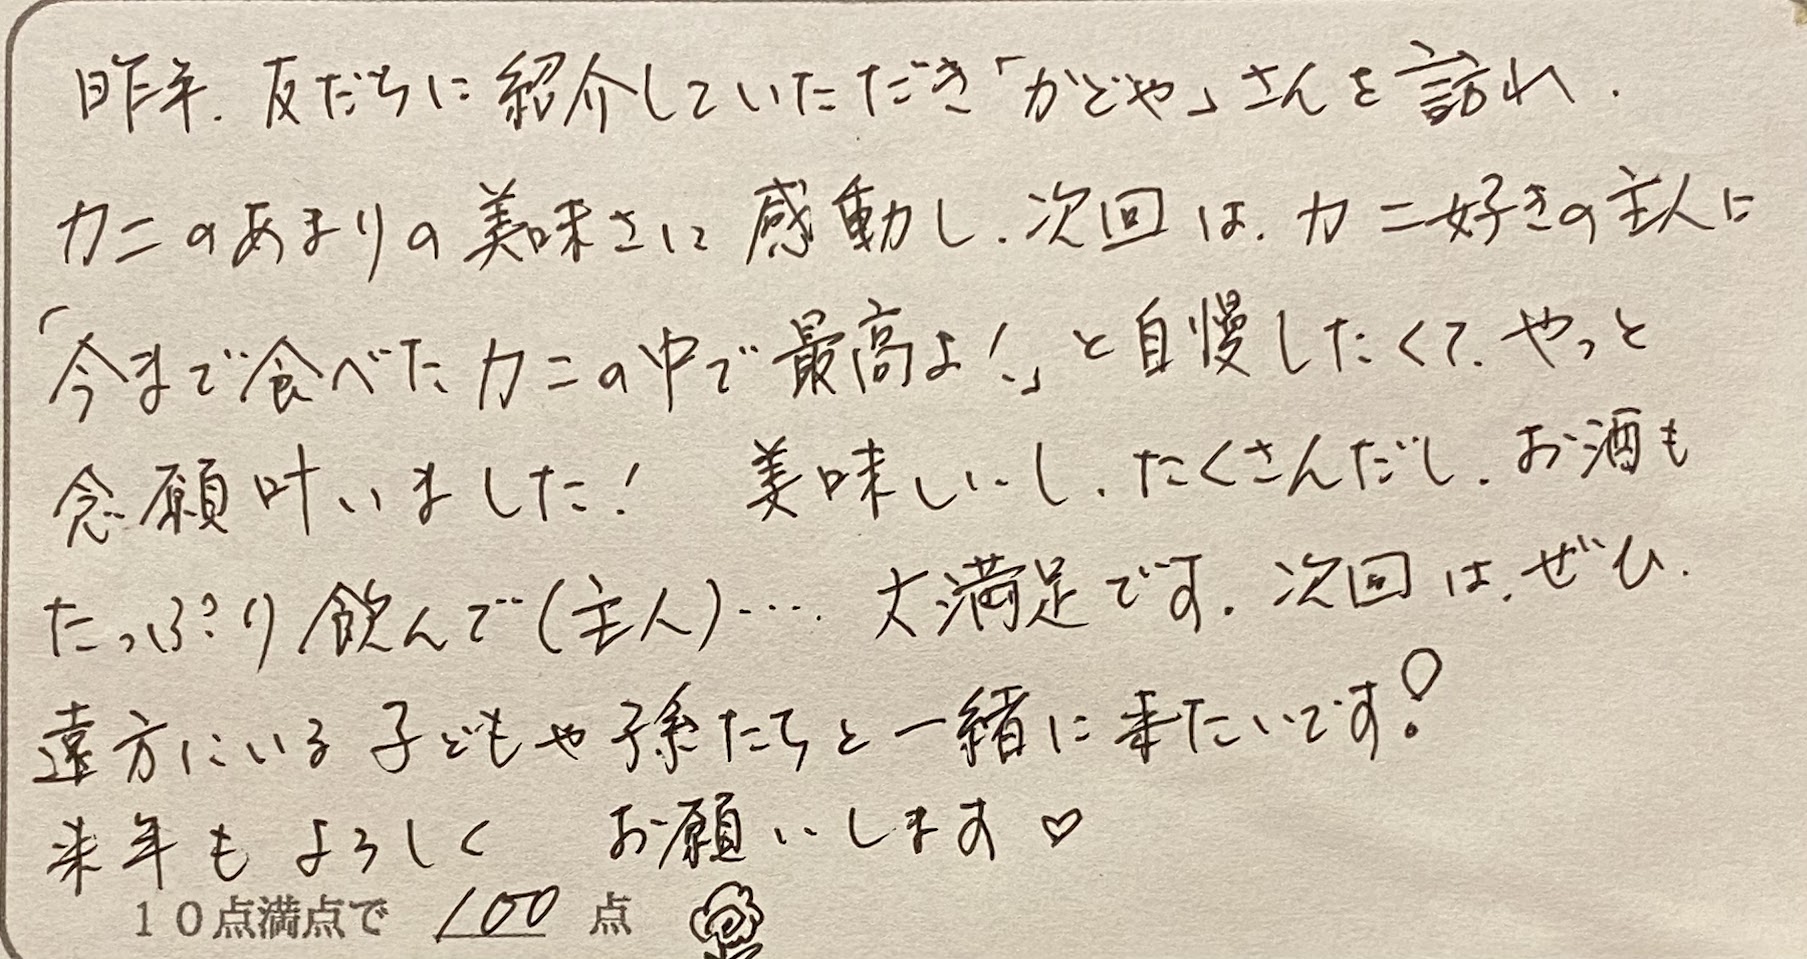 昨年、友だちに紹介していただき「かどや」さんを訪れ、
カニのあまりの美味さに感動し、次回は、カニ好きの主人に
「今まで食べたカニの中で最高よ！」と自慢したくて、やっと
念願叶いました！　美味しいし、たくさんだし、お酒も
たっぷり飲んで（主人）…. 大満足です。次回は、ぜひ、
遠方にいる子どもや孫たちと一緒に来たいです！
来年もよろしく　お願いします♡
10点満点で 100 点